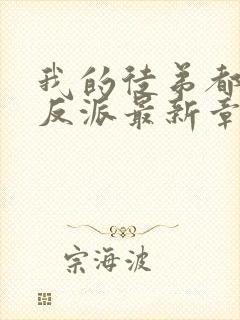 我的徒弟都
反派最新章
宗海波